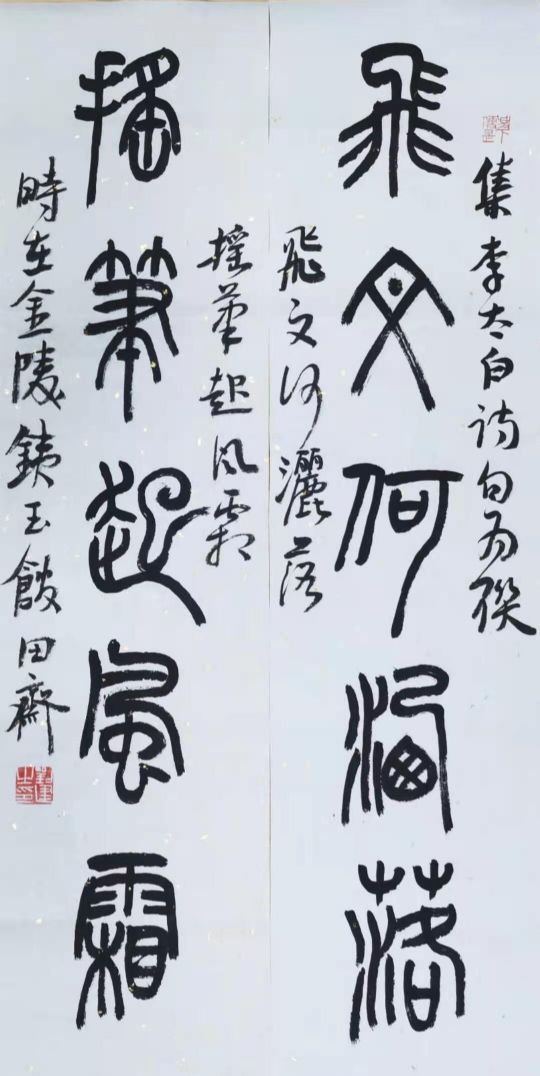 集李太白诗句为联
飛文何洒落
飛文何灑落
搖筆起风霜
搖筆起風霜
時在金陵銕玉田齋